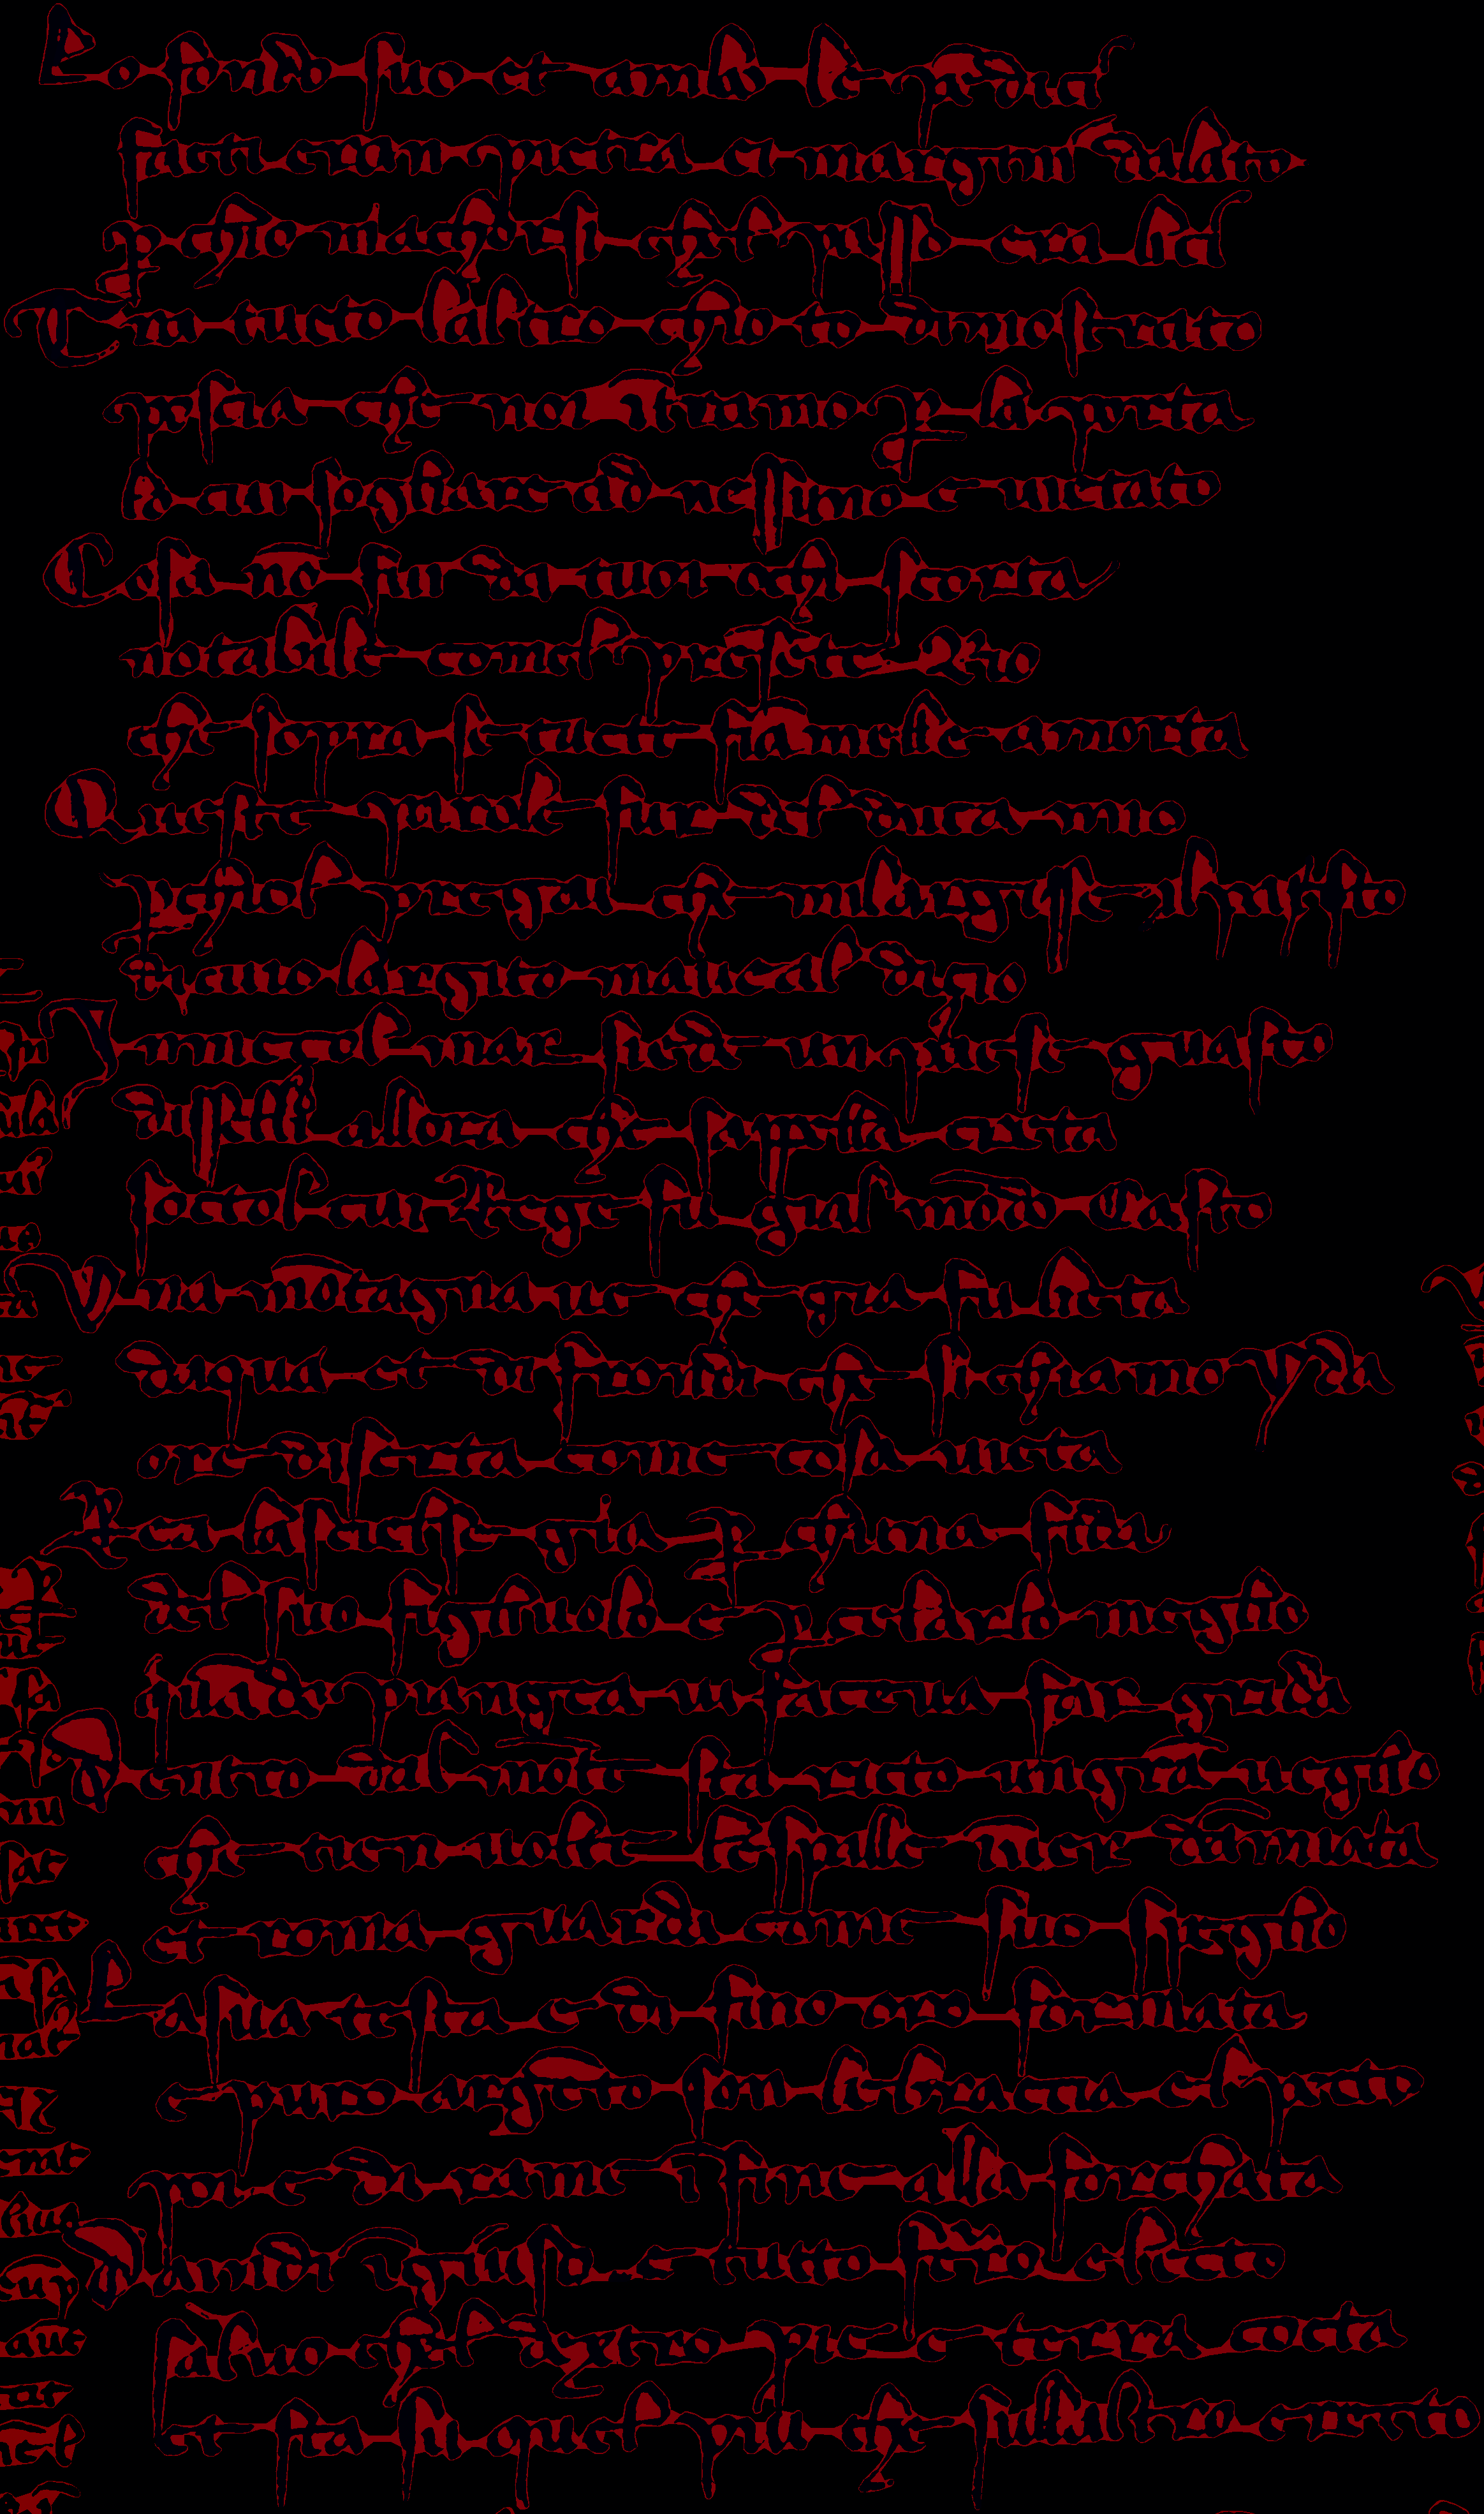 Lo fondo suo et ambo le pēdici
facti eran pietra et margini dalato
p chio macchorsi chel passo era lici
Tra tucto laltro chio to dimostrato
poscia che noi ītramo p la porta
lo cui sogliare ad nessuno e uietato
Cosa nō fu da tuoi occhi scorta
notabile come presēte rio
che sopra se tucte fiāmelle amorta
Queste parole fur del duca mio
p chiol pregai che milargisse il pasto
di cui largito mauea il disio
In mezzol mar siede un paese guasto
disselli allora che sappella creta
sottol cui Rege fu gial mōdo Casto
Una mōtagna ue che gia fu lieta
daqua et di frondi che si chiamo yda
ore diserta come cosa uieta
Rea la scielse gia p chuna fida
del suo figliuolo e p celarlo meglio
quādo piangea ui facea far grida
Dentro dal mōte sta ricto un grā ueglio
che tien uolte le spalle inuer dāmiata
et roma guarda come suo speglio
La sua testa e di fino oro formata
e puro argēto son le braccia el pecto
poi e di rame īfine alla forchata
Da indi īgiuso e tutto ferro electo
saluo chel dextro pie e terra cocta
et sta su quel piu che sullaltro erecto